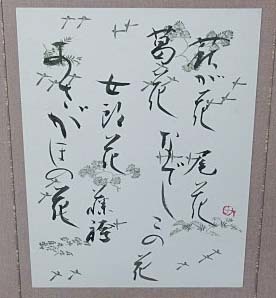 萩が花 尾花
葛花 なでしこの花
女郎花 藤袴
あさがほの花